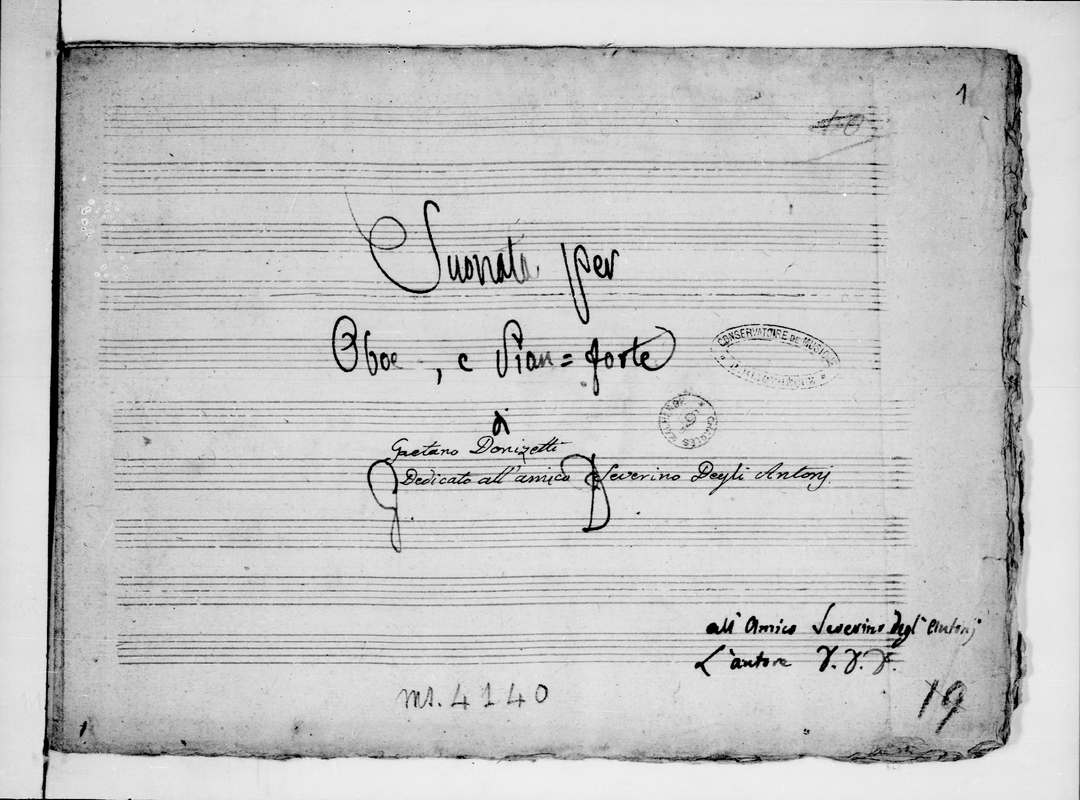 1
Suonata per
Oboe, e Pian=forte
CONSERVATOIRE DE MUSIQUE
di
CHARLES MALHERBE
Gaetano Donizetti
Dedicato all'amico Severino Degli Antonj.
G D.
all'Amico Severino Degl'Antonj
L'autore
ms. 4140
19
1